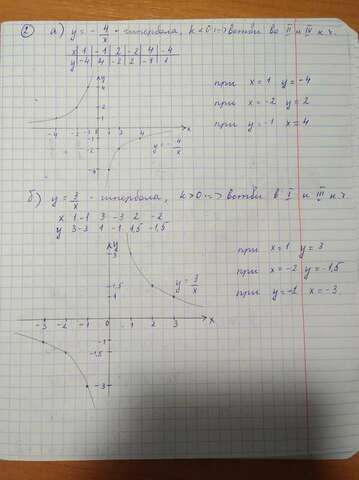 ② а) y = - 4/x - гипербола, k < 0 => ветви во II и IV к.ч.
x | 1 | -1 | 2 | -2 | 4 | -4
y | -4 | 4 | -2 | 2 | -1 | 1
при x = 1 y = -4
при x = -2 y = 2
при y = -1 x = 4
y
4
2
1
-4 -2 -1 0 1 2 4 x
-1
-2
-4
y = - 4/x
б) y = 3/x - гипербола, k > 0 => ветви в I и III к.ч.
x 1 -1 3 -3 2 -2
y 3 -3 1 -1 1,5 -1,5
при x = 1 y = 3
при x = -2 y = -1,5
при y = -1 x = -3
y
3
1,5
1
y = 3/x
-3 -2 -1 0 1 2 3 x
-1
-1,5
-3